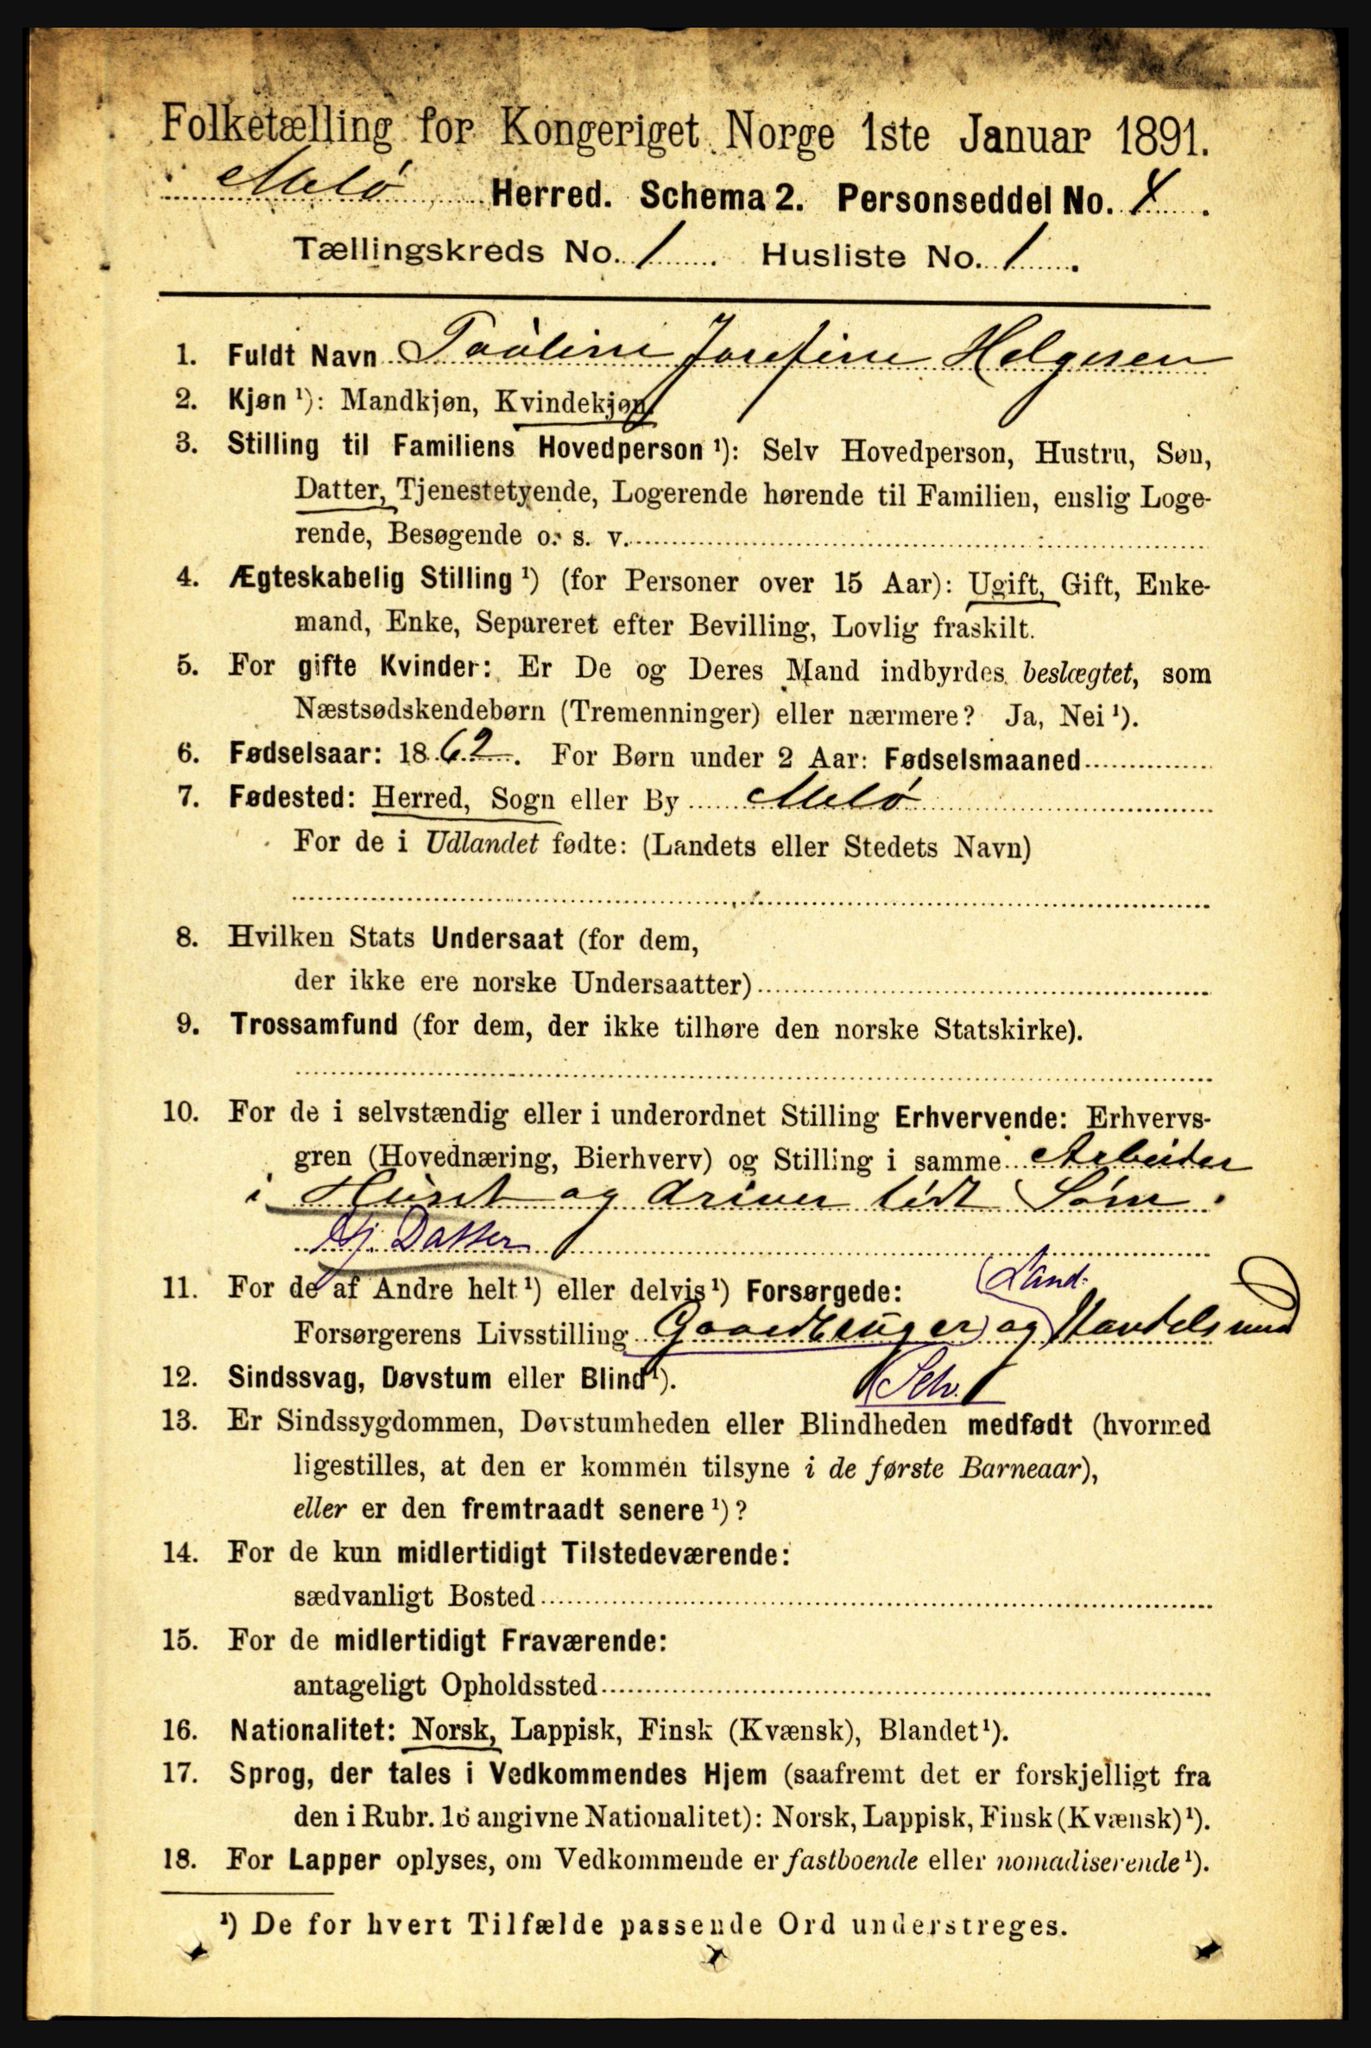 Folketælling for Kongeriget Norge 1ste Januar 1891.
Melø Herred. Schema 2. Personseddel No. 4.
Tællingskreds No. 1. Husliste No. 1.
1. Fuldt Navn Paoline Josefine Helgesen
2. Kjøn ¹): Mandkjøn, Kvindekjøn.
3. Stilling til Familiens Hovedperson ¹): Selv Hovedperson, Hustru, Søn,
Datter, Tjenestetyende, Logerende hørende til Familien, enslig Loge-
rende, Besøgende o. s. v.
4. Ægteskabelig Stilling ¹) (for Personer over 15 Aar): Ugift, Gift, Enke-
mand, Enke, Separeret efter Bevilling, Lovlig fraskilt.
5. For gifte Kvinder: Er De og Deres Mand indbyrdes beslægtet, som
Næstsødskendebørn (Tremenninger) eller nærmere? Ja, Nei ¹).
6. Fødselsaar: 1862. For Børn under 2 Aar: Fødselsmaaned
7. Fødested: Herred, Sogn eller By Melø
For de i Udlandet fødte: (Landets eller Stedets Navn)
8. Hvilken Stats Undersaat (for dem,
der ikke ere norske Undersaatter)
9. Trossamfund (for dem, der ikke tilhøre den norske Statskirke).
10. For de i selvstændig eller i underordnet Stilling Erhvervende: Erhvervs-
gren (Hovednæring, Bierhverv) og Stilling i samme Arbeider
i Huset og driver lidt Søm.
Hj. Datter
11. For de af Andre helt ¹) eller delvis ¹) Forsørgede: Land.
Forsørgerens Livsstilling Gaardbruger og Handelsmd
12. Sindssvag, Døvstum eller Blind ¹). Selv.
13. Er Sindssygdommen, Døvstumheden eller Blindheden medfødt (hvormed
ligestilles, at den er kommen tilsyne i de første Barneaar),
eller er den fremtraadt senere ¹)?
14. For de kun midlertidigt Tilstedeværende:
sædvanligt Bosted
15. For de midlertidigt Fraværende:
antageligt Opholdssted
16. Nationalitet: Norsk, Lappisk, Finsk (Kvænsk), Blandet ¹).
17. Sprog, der tales i Vedkommendes Hjem (saafremt det er forskjelligt fra
den i Rubr. 16 angivne Nationalitet): Norsk, Lappisk, Finsk (Kvænsk) ¹).
18. For Lapper oplyses, om Vedkommende er fastboende eller nomadiserende ¹).
¹) De for hvert Tilfælde passende Ord understreges.